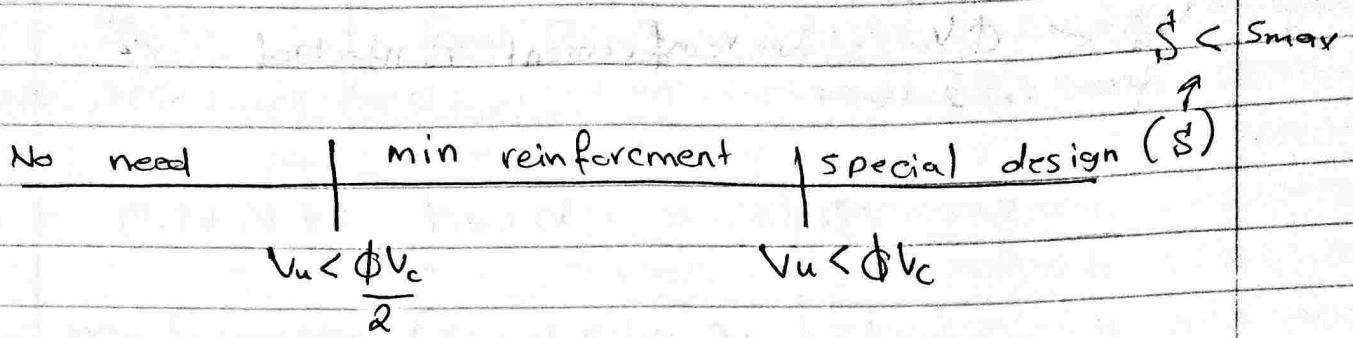 S < Smax
↑
No need | min reinforcment | special design (S)
Vu < φVc/2 Vu < φVc